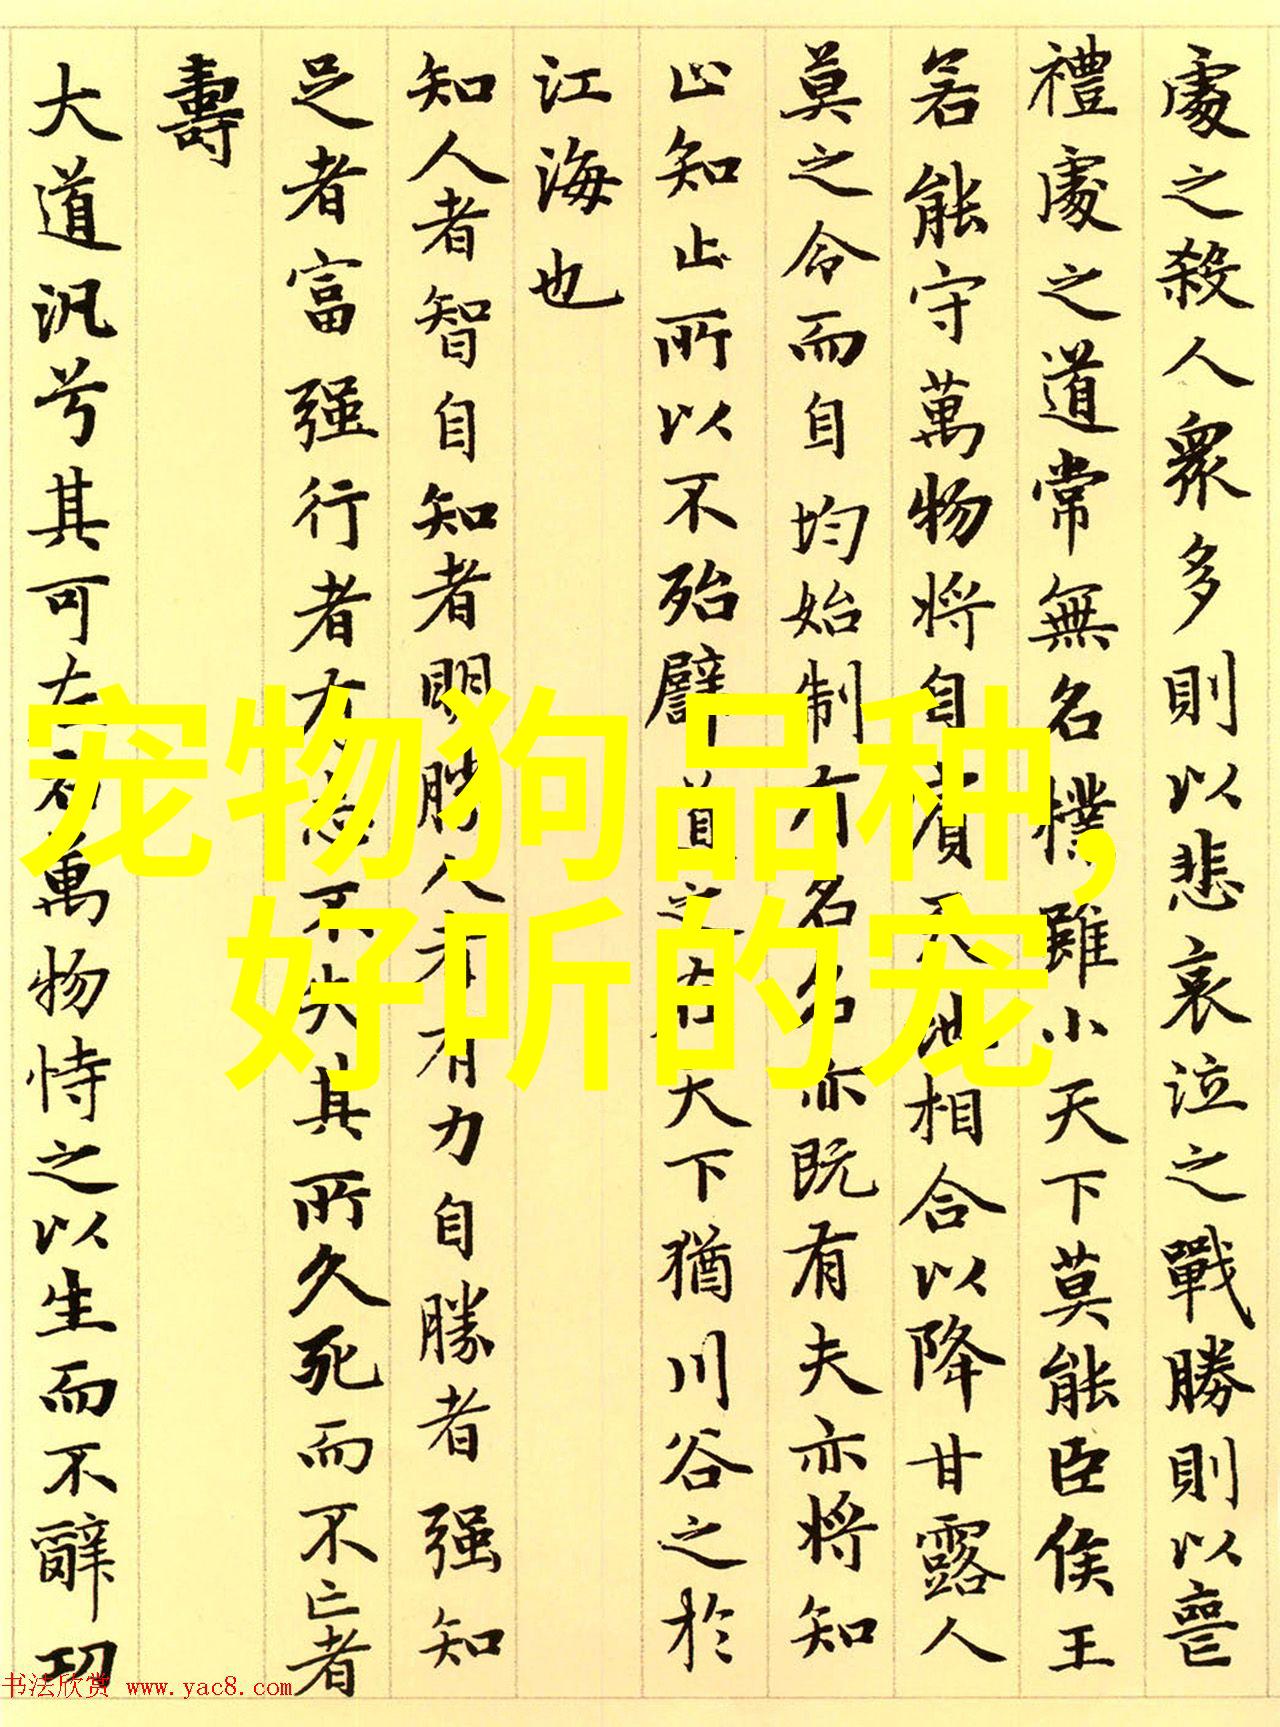 處之殺人衆多則以悲哀泣之戰勝則以喪
禮處之道常無名樸雖小天下莫能臣侯王
若能守萬物將自賓天地相合以降甘露人
莫之令而自均始制有名名亦既有夫亦將知
止知止所以不殆譬道之在天下猶川谷之於
江海也
知人者智自知者明勝人者有力自勝者强知
足者富强行者有志不失其所久死而不亡者
壽
大道汎兮其可左右萬物恃之以生而不辭功
宠物狗品种,
好听的宠
书法欣赏 www.yac8.com